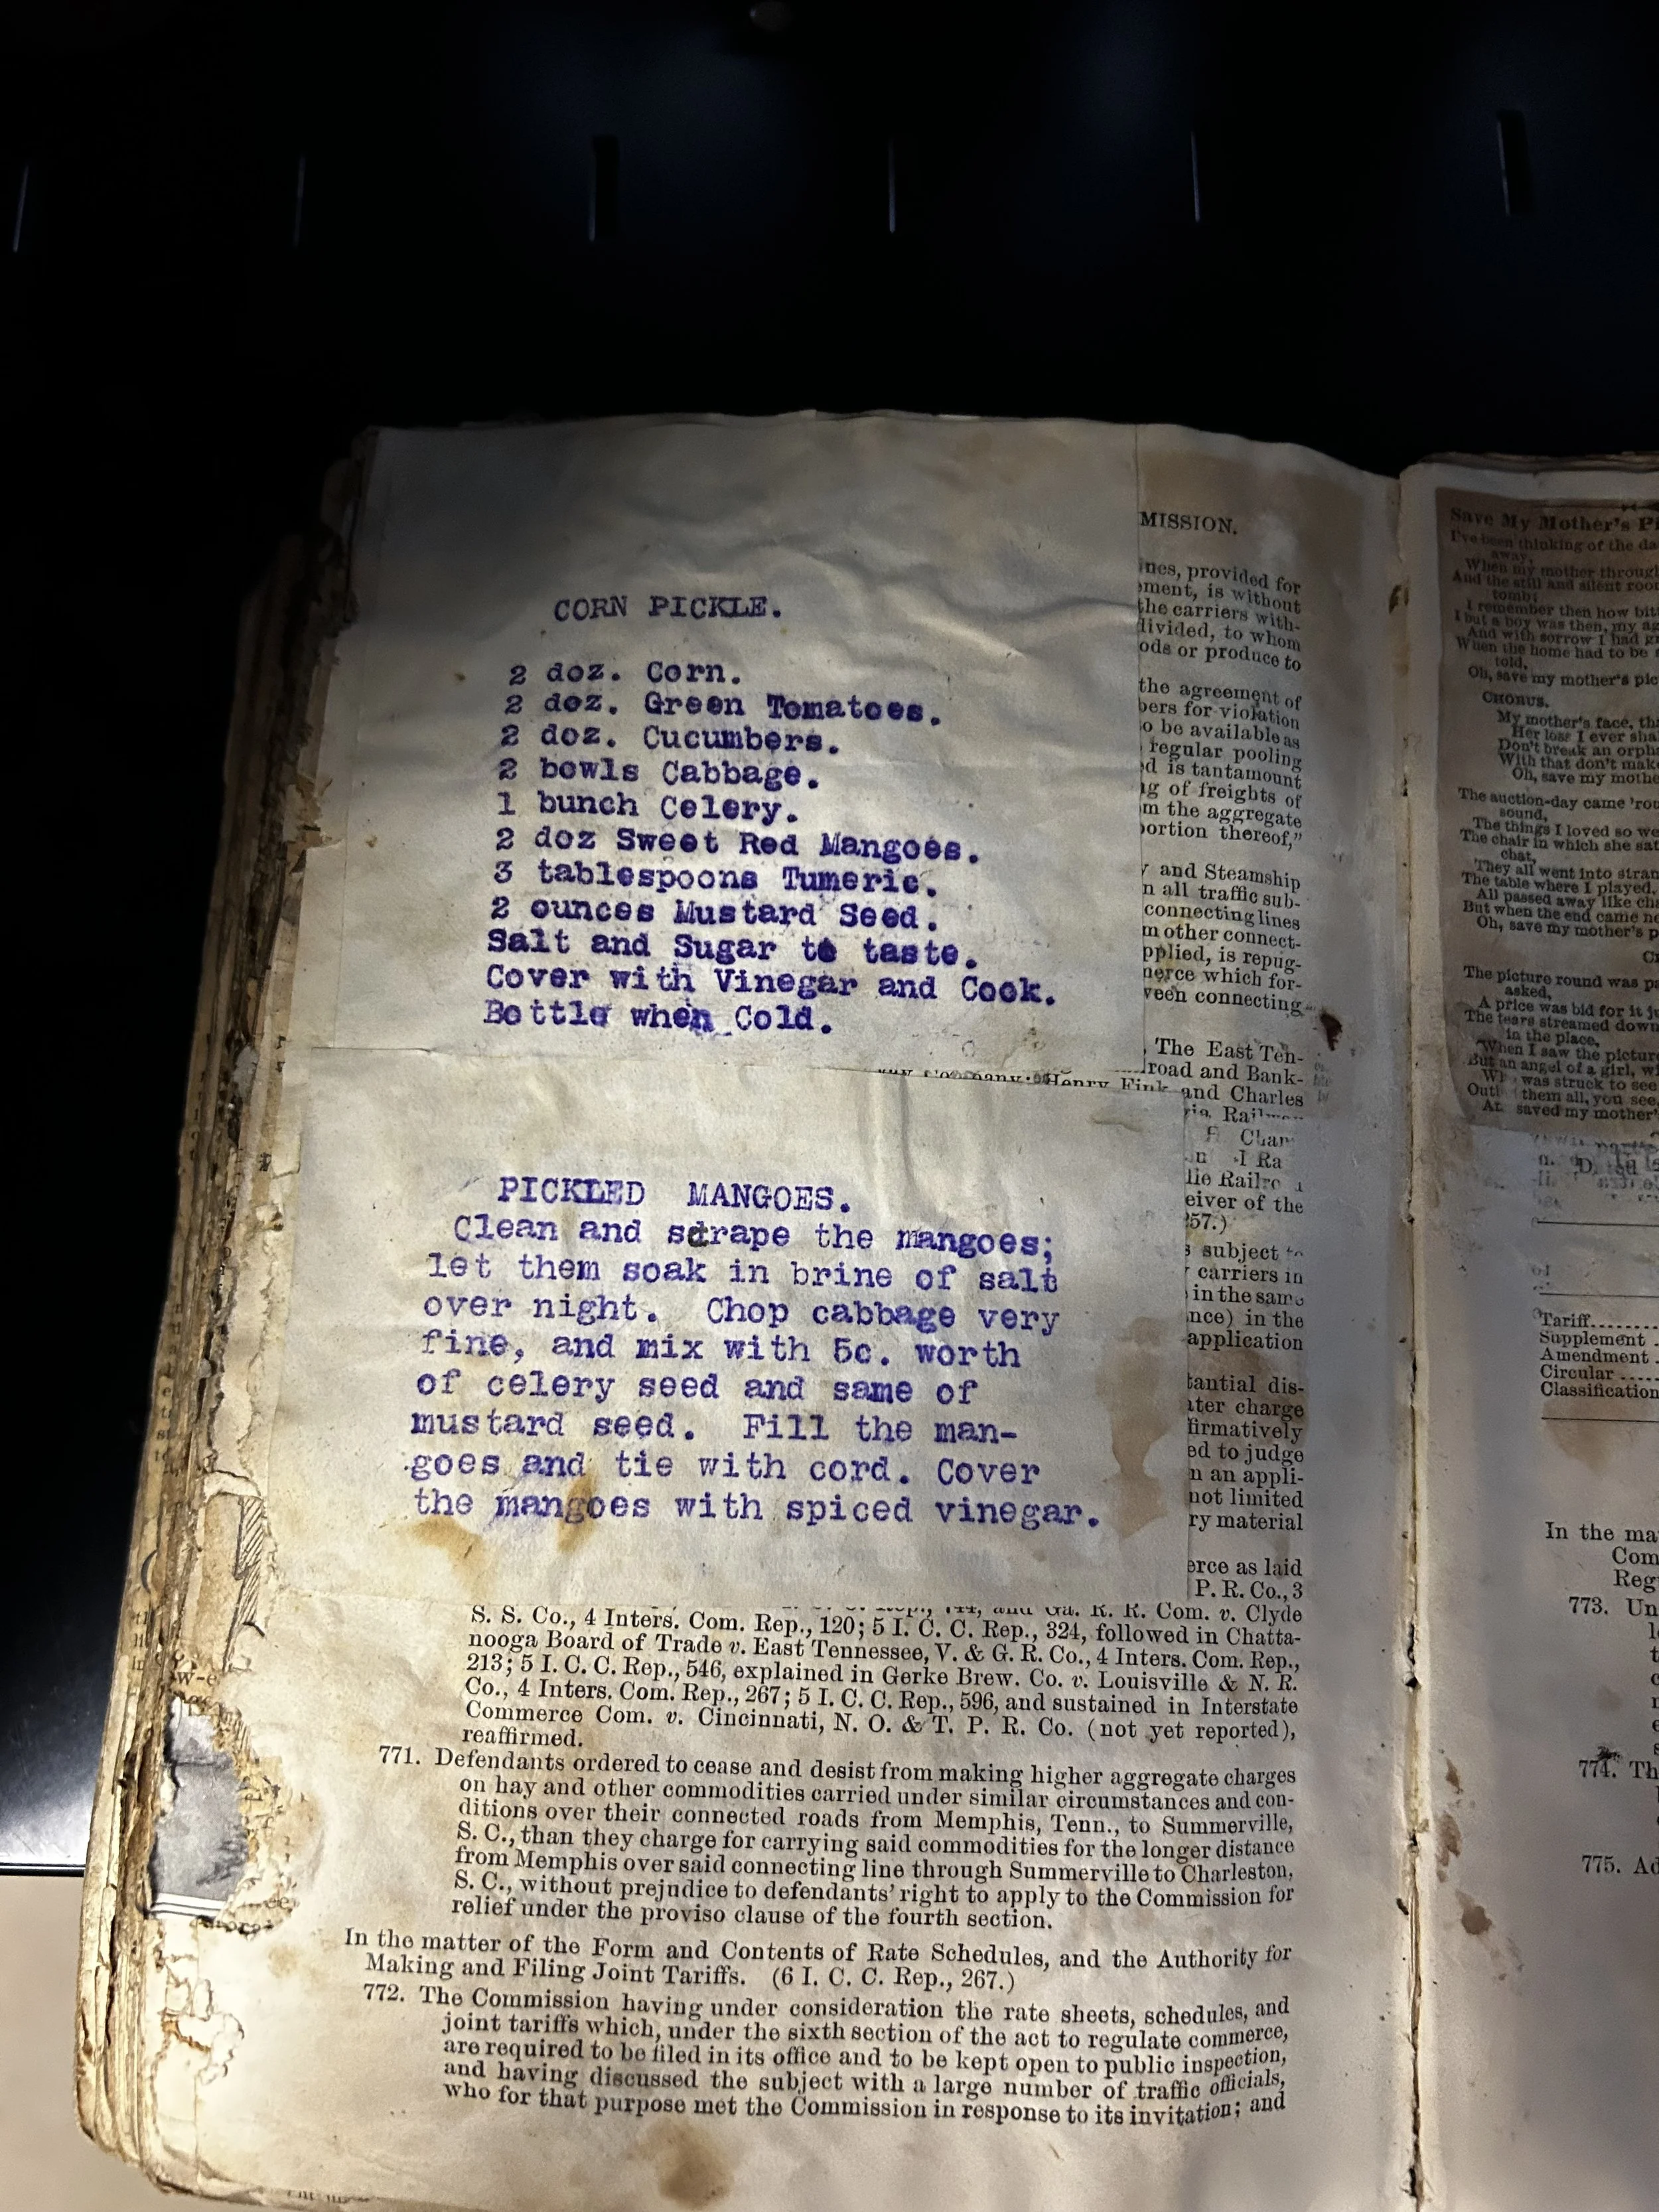 CORN PICKLE.
2 doz. Corn.
2 doz. Green Tomatoes.
2 doz. Cucumbers.
2 bowls Cabbage.
1 bunch Celery.
2 doz Sweet Red Mangoes.
3 tablespoons Tumeric.
2 ounces Mustard Seed.
Salt and Sugar to taste.
Cover with Vinegar and Cook.
Bottle when Cold.
PICKLED MANGOES.
Clean and scrape the mangoes;
let them soak in brine of salt
over night. Chop cabbage very
fine, and mix with 5c. worth
of celery seed and same of
mustard seed. Fill the man-
goes and tie with cord. Cover
the mangoes with spiced vinegar.
MISSION.
provided for
is without
the carriers with-
to whom
ods or produce to
the agreement of
bers for violation
o be available as
regular pooling
d is tantamount
of freights of
m the aggregate
portion thereof,"
and Steamship
n all traffic sub-
connecting lines
m other connect-
pplied, is repug-
merce which for-
veen connecting
The East Ten-
road and Bank-
Company; Henry Fink and Charles
eiver of the
57.)
subject
carriers in
in the same
nce) in the
application
tantial dis-
ter charge
firmatively
ed to judge
n an appli-
not limited
ry material
erce as laid
P. R. Co., 3
and Ga. R. R. Com. v. Clyde
S. S. Co., 4 Inters. Com. Rep., 120; 5 I. C. C. Rep., 324, followed in Chatta-
nooga Board of Trade v. East Tennessee, V. & G. R. Co., 4 Inters. Com. Rep.,
213; 5 I. C. C. Rep., 546, explained in Gerke Brew. Co. v. Louisville & N. R.
Co., 4 Inters. Com. Rep., 267; 5 I. C. C. Rep., 596, and sustained in Interstate
Commerce Com. v. Cincinnati, N. O. & T. P. R. Co. (not yet reported),
reaffirmed.
771. Defendants ordered to cease and desist from making higher aggregate charges
on hay and other commodities carried under similar circumstances and con-
ditions over their connected roads from Memphis, Tenn., to Summerville,
S. C., than they charge for carrying said commodities for the longer distance
from Memphis over said connecting line through Summerville to Charleston,
S. C., without prejudice to defendants' right to apply to the Commission for
relief under the proviso clause of the fourth section.
In the matter of the Form and Contents of Rate Schedules, and the Authority for
Making and Filing Joint Tariffs. (6 I. C. C. Rep., 267.)
772. The Commission having under consideration the rate sheets, schedules, and
joint tariffs which, under the sixth section of the act to regulate commerce,
are required to be filed in its office and to be kept open to public inspection,
and having discussed the subject with a large number of traffic officials,
who for that purpose met the Commission in response to its invitation; and
Save My Mother's
I've been thinking of the
away,
When my mother through
And the still and silent
tomb;
I remember then how
I but a boy was then, my
And with sorrow I had
When the home had to be
told,
Oh, save my mother's
CHORUS.
My mother's face,
Her loss I ever
Don't break an
With that don't
Oh, save my
The auction-day came
sound,
The things I loved so
The chair in which she sat
chat,
They all went into
The table where I played,
All passed away like
But when the end came
Oh, save my mother's
The picture round was
asked,
A price was bid for it
The tears streamed down
in the place,
When I saw the picture
But an angel of a girl,
was struck to see
them all, you see,
saved my mother's
Tariff
Supplement
Amendment
Circular
Classification
In the
773. Un
774.
775.